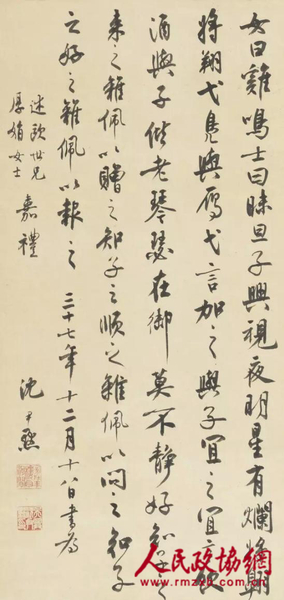 女曰雞鳴士曰昧旦子興視夜明星有爛將翱
將翔弋鳧與雁弋言加之與子宜之宜言飲
酒與子偕老琴瑟在御莫不靜好知子之
來之雜佩以贈之知子之順之雜佩以問之知子
之好之雜佩以報之 三十七年十二月十八日書為
述歐世兄
厚娟女士
嘉禮
沈尹默
人民政协網
www.rmzxb.com.cn